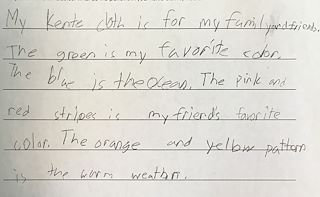 My Kente cloth is for my family and friends.
The green is my favorite color.
The blue is the Ocean. The pink and
red stripes is my friends favorite
color. The orange and yellow pattern
is the warm weather.